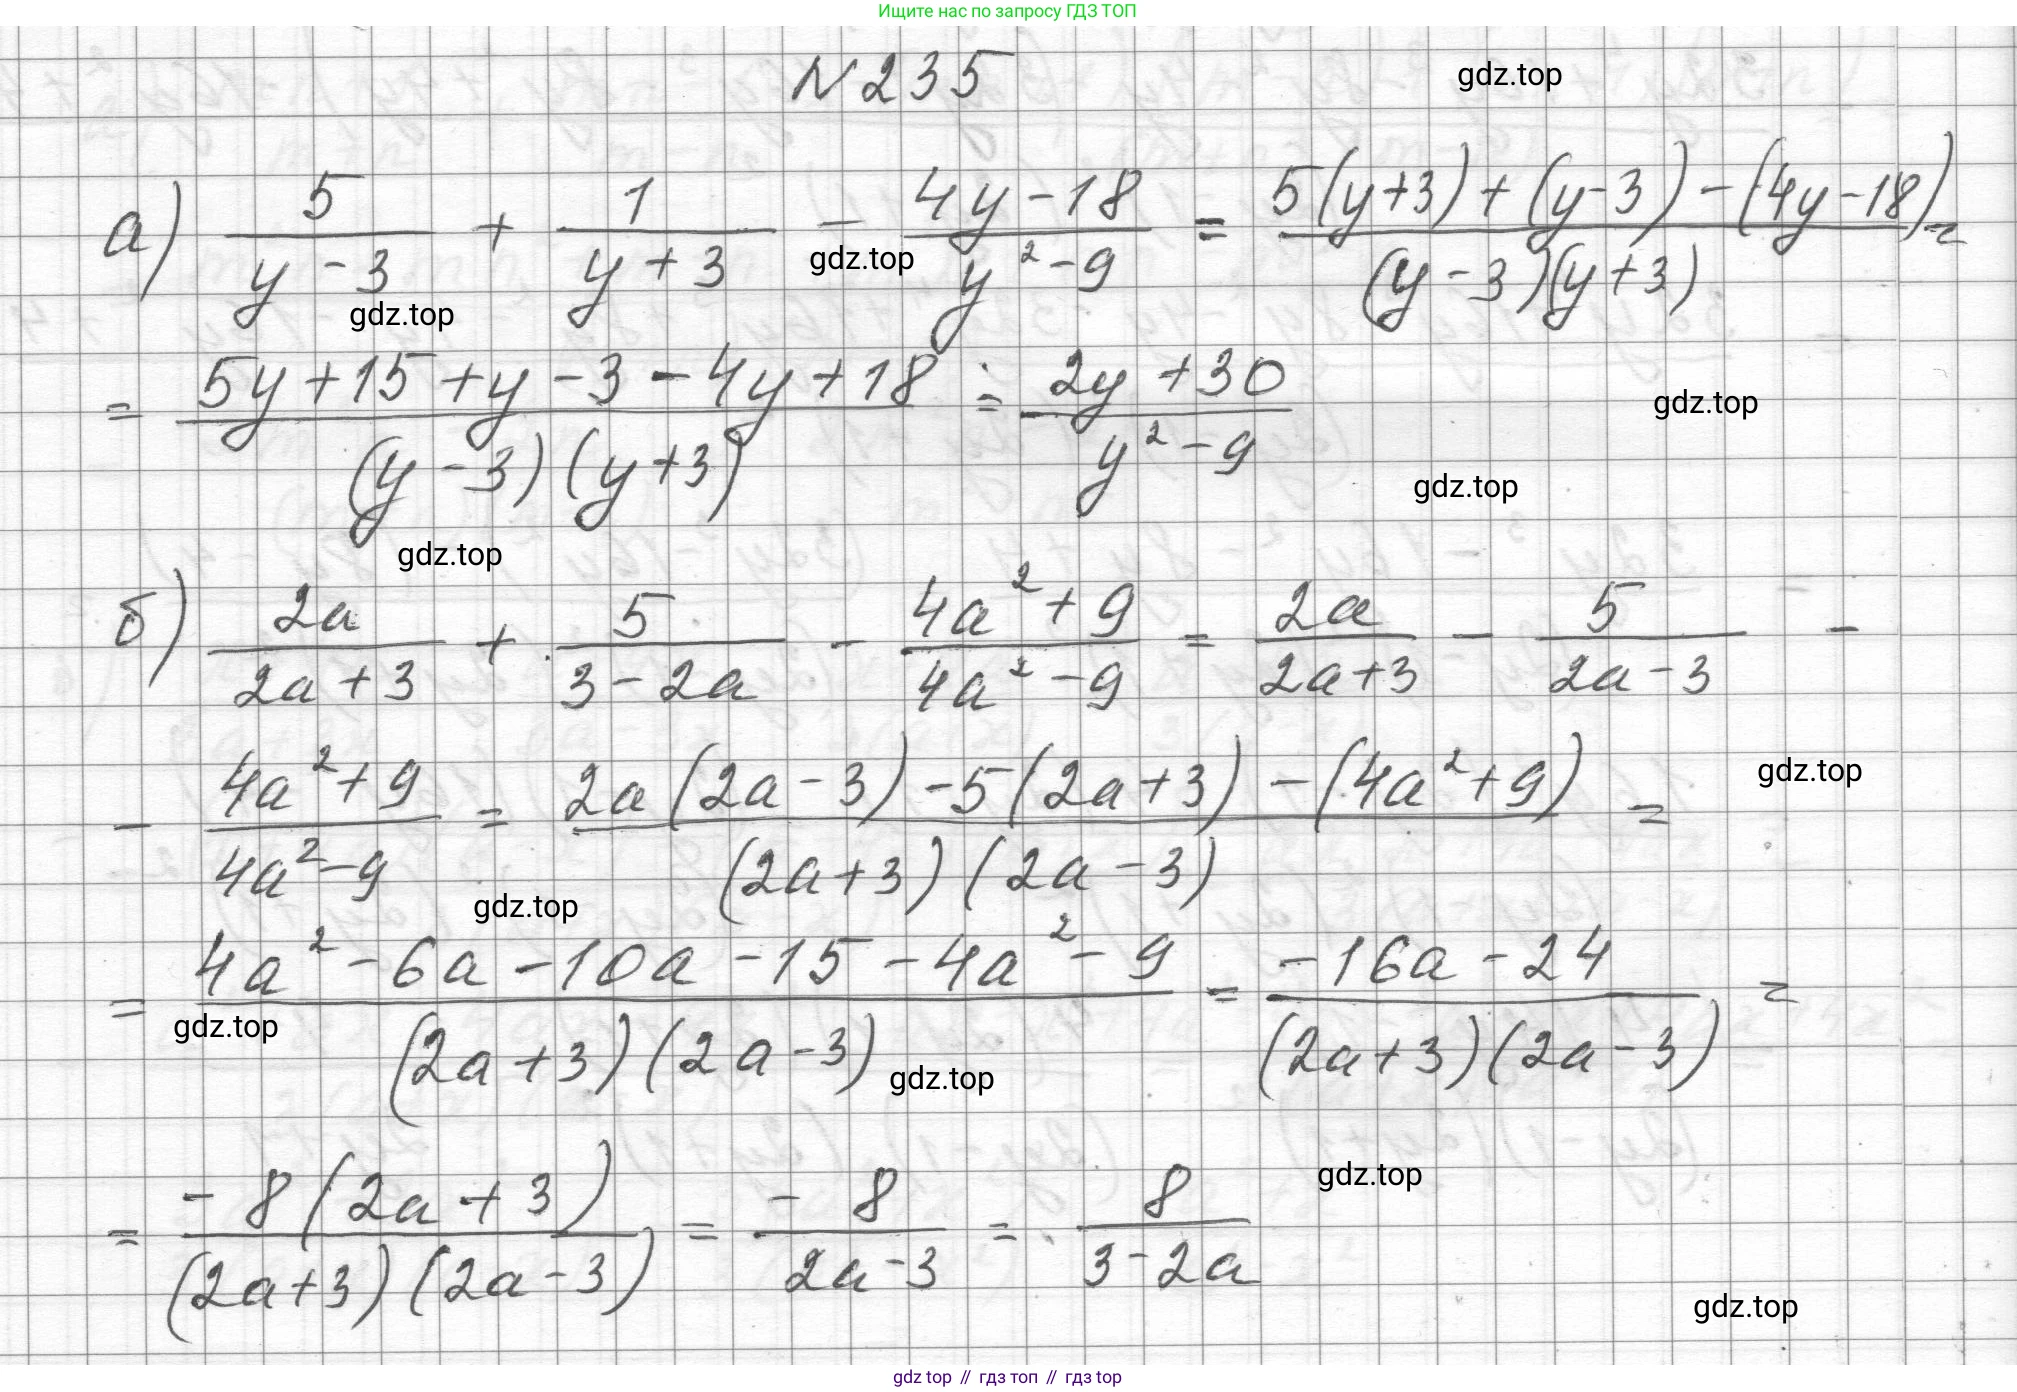 Ищите нас по запросу ГДЗ ТОП
N 235
gdz.top
а) 5/(y-3) + 1/(y+3) - (4y-18)/(y²-9) = (5(y+3)+(y-3)-(4y-18))/((y-3)(y+3)) =
gdz.top
gdz.top
= (5y+15+y-3-4y+18)/((y-3)(y+3)) = (2y+30)/(y²-9)
gdz.top
gdz.top
gdz.top
б) 2a/(2a+3) + 5/(3-2a) - (4a²+9)/(4a²-9) = 2a/(2a+3) - 5/(2a-3) -
- (4a²+9)/(4a²-9) = (2a(2a-3)-5(2a+3)-(4a²+9))/((2a+3)(2a-3)) =
gdz.top
gdz.top
= (4a²-6a-10a-15-4a²-9)/((2a+3)(2a-3)) = (-16a-24)/((2a+3)(2a-3)) =
gdz.top
gdz.top
= (-8(2a+3))/((2a+3)(2a-3)) = -8/(2a-3) = 8/(3-2a)
gdz.top
gdz.top
gdz.top // гдз топ // gdz top